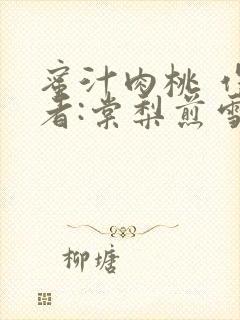 蜜汁肉桃 作
者:棠梨煎雪
柳塘